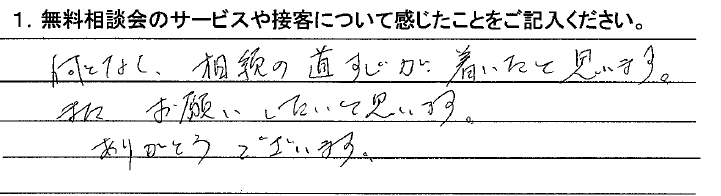 1. 無料相談会のサービスや接客について感じたことをご記入ください。
何となく、相続の道すじが着いたと思います。
また お願いしたいと思います。
ありがとうございます。